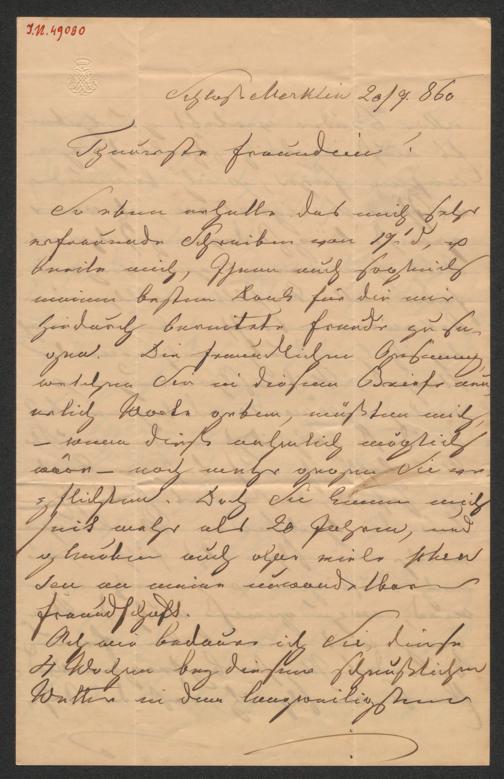 I.N. 49080
Schloß Merklin 20/9. 860
Theuerste Freundin!
So eben erhalte das mich sehr
erfreuende Schreiben vom 19t. d,
beeile mich, Ihnen auch sogleich
meinen besten Dank für die mir
hiedurch bereitete Freude zu sa-
gen. Die freundlichen
welchen Sie in diesem Briefe
Worte geben, müßten mich,
– wenn dieß möglich
wäre – noch mehr gegen Sie ver-
pflichten. Doch Sie kennen mich
seit mehr als 20 Jahren, und
glauben auch ohne viele
an meine unwandelbare
Freundschaft.
bedaure ich Sie, diese
4 Wochen bey diesem scheußlichen
Wetter in dem langweiligsten